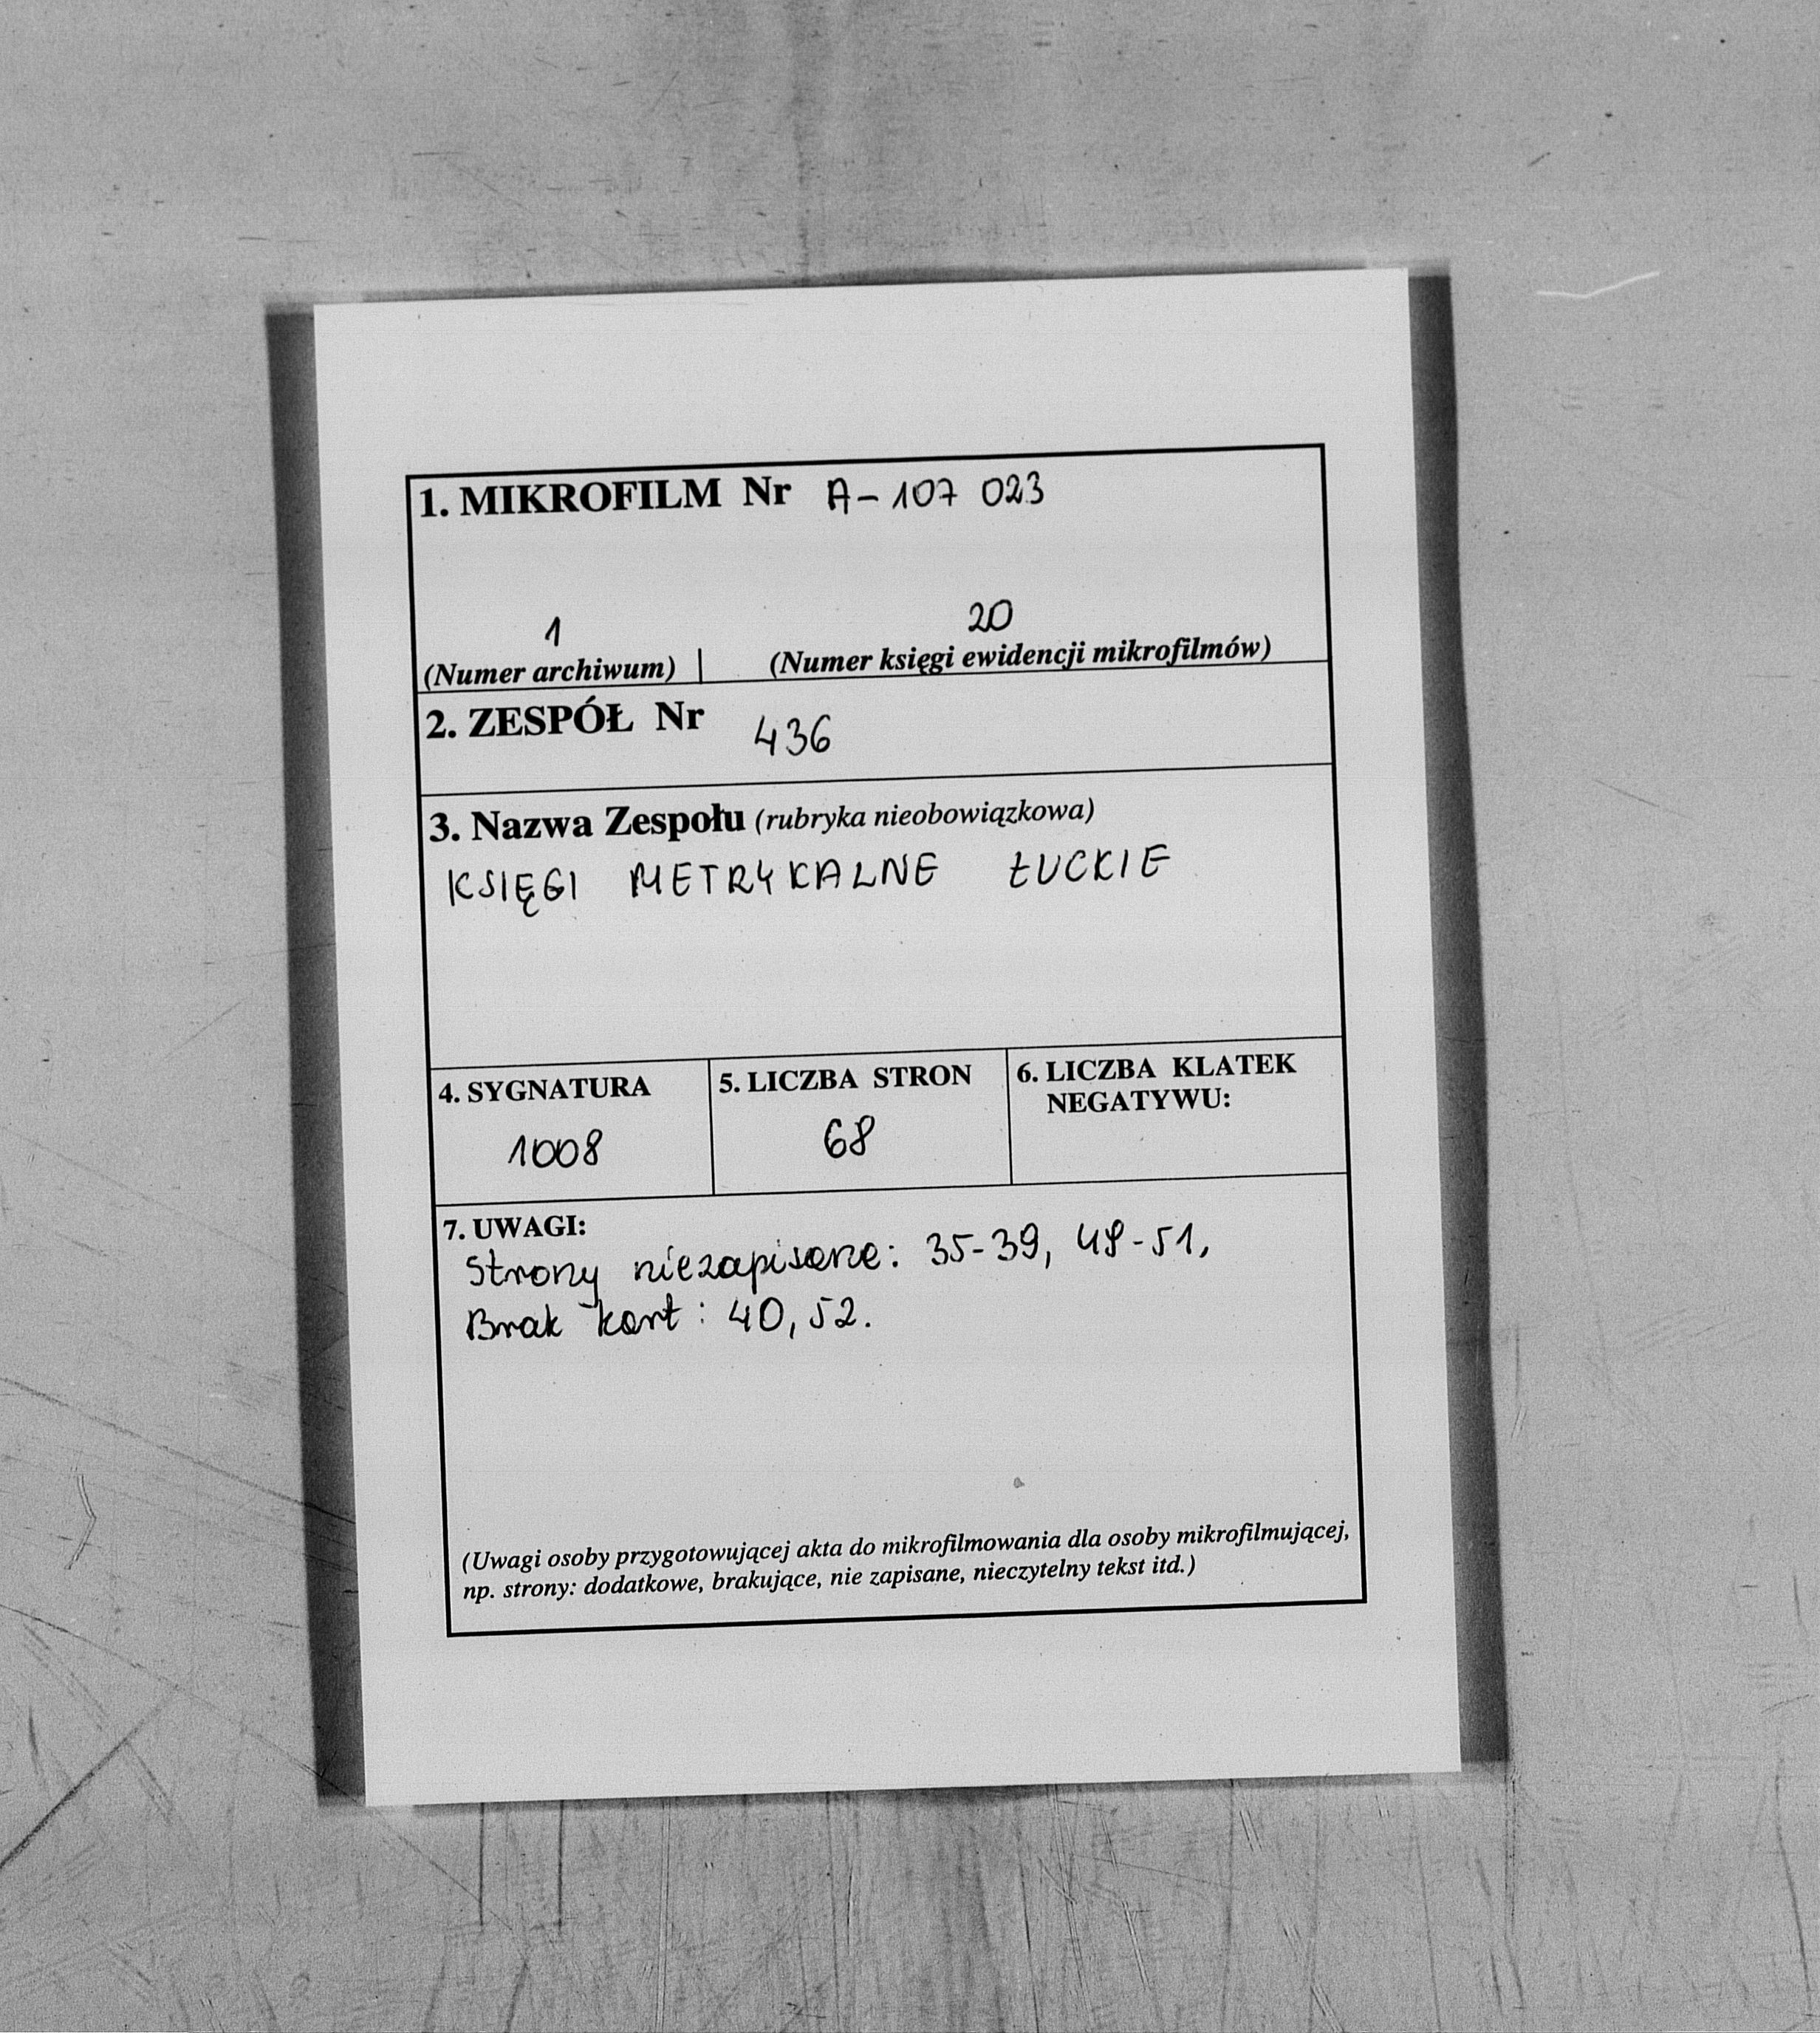 1. MIKROFILM Nr A-107 023
1 20
(Numer archiwum) | (Numer księgi ewidencji mikrofilmów)
2. ZESPÓŁ Nr 436
3. Nazwa Zespołu (rubryka nieobowiązkowa)
KSIĘGI METRYKALNE ŁUCKIE
4. SYGNATURA 5. LICZBA STRON 6. LICZBA KLATEK
NEGATYWU:
1008 68
7. UWAGI:
Strony niezapisane: 35-39, 48-51,
Brak kart: 40, 52.
(Uwagi osoby przygotowującej akta do mikrofilmowania dla osoby mikrofilmującej,
np. strony: dodatkowe, brakujące, nie zapisane, nieczytelny tekst itd.)